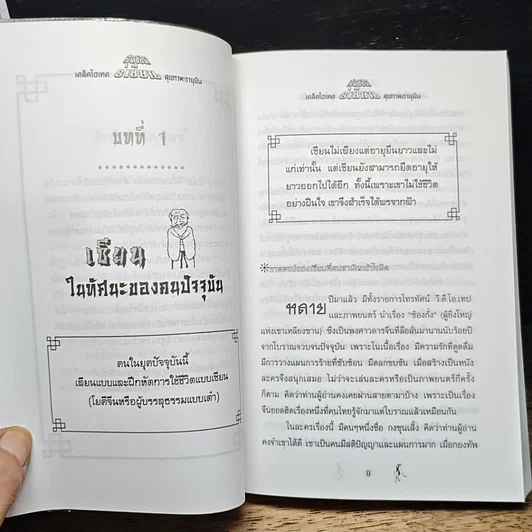 เคล็ดไฮเทค คู่มือเซียน สุขภาพอายุยืน
บทที่ 1
เซียน
ในทัศนะของคนปัจจุบัน
คนในยุคปัจจุบันนี้
เลียนแบบและฝึกหัดการใช้ชีวิตแบบเซียน
(โยคีจีนหรือผู้บรรลุธรรมแบบเต๋า)
เคล็ดไฮเทค คู่มือเซียน สุขภาพอายุยืน
เซียนไม่เพียงแต่อายุยืนยาวและไม่
แก่เท่านั้น แต่เซียนยังสามารถยืดอายุให้
ยาวออกไปได้อีก ทั้งนี้เพราะเขาไม่ใช้ชีวิต
อย่างฝืนใจ เขาจึงสำเร็จได้พรจากฟ้า
หลาย ปีมาแล้ว มีทั้งรายการโทรทัศน์ วี.ดี.โอ.เทป
และภาพยนตร์ นำเรื่อง "ซ้องกั๋ง" (ผู้ยิ่งใหญ่
แห่งเขาเหลียงซาน) ซึ่งเป็นพงศาวดารจีนที่ลือลั่นมานานนับร้อยปี
จากโบราณจวบจนปัจจุบัน เพราะในเนื้อเรื่อง มีความรักที่ดูดดื่ม
มีการวางแผนการร้ายที่ซับซ้อน มีตลกขบขัน เมื่อสร้างเป็นหนัง
ละครจึงสนุกเสมอ ไม่ว่าจะเล่นละครหรือเป็นภาพยนตร์กี่ครั้ง
ก็ตาม คิดว่าท่านผู้อ่านคงเคยผ่านสายตามาบ้าง เพราะเป็นเรื่อง
จีนยอดฮิตเรื่องหนึ่งที่คนไทยรู้จักมาแต่โบราณแล้วเหมือนกัน
ในละครเรื่องนี้ มีคนๆหนึ่งชื่อ กงซุนเสิ้ง คิดว่าท่านผู้อ่าน
คงจำเขาได้ดี เขาเป็นคนมีสติปัญญาและแผนการมาก เมื่อกองทัพ
9